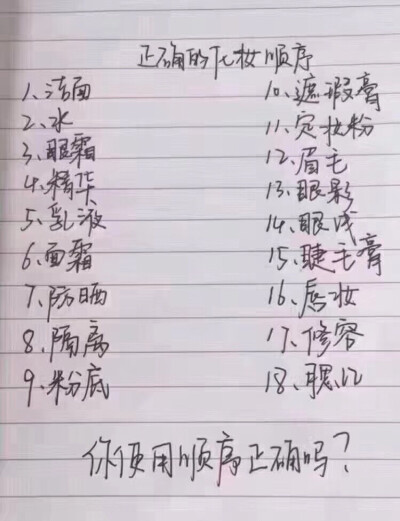 正确的化妆顺序
1、洁面
2、水
3、眼霜
4、精华
5、乳液
6、面霜
7、防晒
8、隔离
9、粉底
10、遮瑕膏
11、定妆粉
12、眉毛
13、眼影
14、眼线
15、睫毛膏
16、唇妆
17、修容
18、腮红
你使用顺序正确吗?